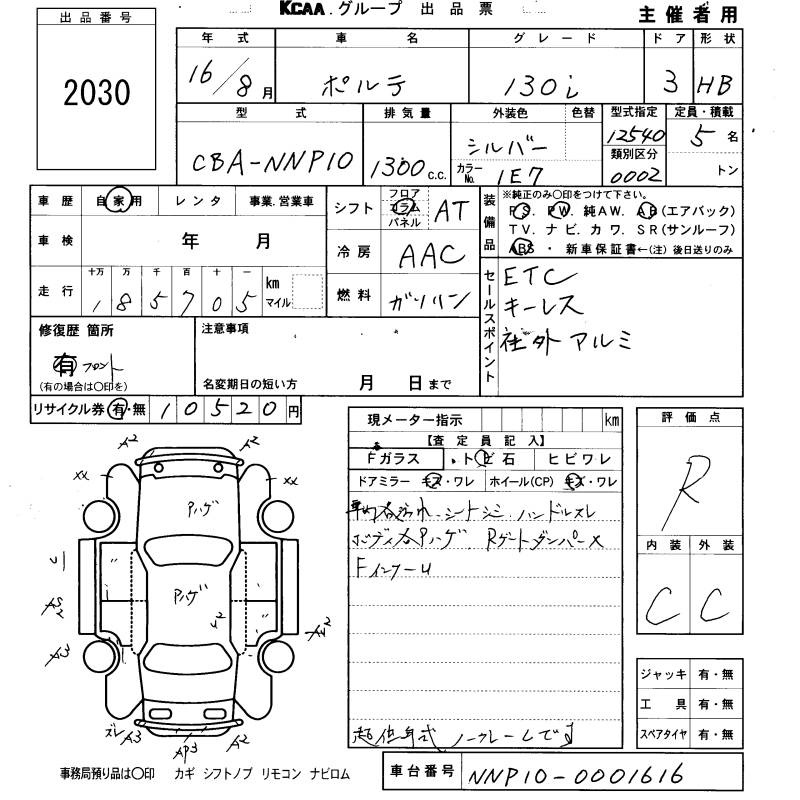 KCAA.グループ 出品票
主催者用
出品番号
2030
年式 車名 グレード ドア 形状
16/8月 ポルテ 130i 3 HB
型式 排気量 外装色 色替 型式指定 定員・積載
CBA-NNP10 1300 c.c. シルバー 12540 5名
カラーNo. 1E7 類別区分 0002 トン
車歴 自家用 レンタ 事業.営業車
シフト フロア コラム パネル AT
装備品 ※純正のみ〇印をつけて下さい。
P.S. P.W. 純AW. AB(エアバック)
TV. ナビ. カワ. SR(サンルーフ)
ABS・新車保証書←(注)後日送りのみ
車検 年 月
冷房 AAC
走行 十万 万 千 百 十 一
1 8 5 7 0 5 km マイル
燃料 ガソリン
セールスポイント
ETC
キーレス
社外アルミ
修復歴 箇所
有 フロント
(有の場合は〇印を)
注意事項
名変期日の短い方 月 日まで
リサイクル券 有・無 10520円
現メーター指示 km
【査定員記入】
Fガラス トビ石 ヒビワレ
ドアミラー キズ・ワレ ホイール(CP) キズ・ワレ
シートシミ ハンドルスレ
Pハゲ Rゲートダンパー×
Fインナーu
評価点
R
内装 外装
C C
A2 A2
xx xx
Pハゲ
Pハゲ
A3
ズレ A3 AP3 A2
ジャッキ 有・無
工具 有・無
スペアタイヤ 有・無
事務局預り品は〇印 カギ シフトノブ リモコン ナビロム
車台番号 NNP10-0001616